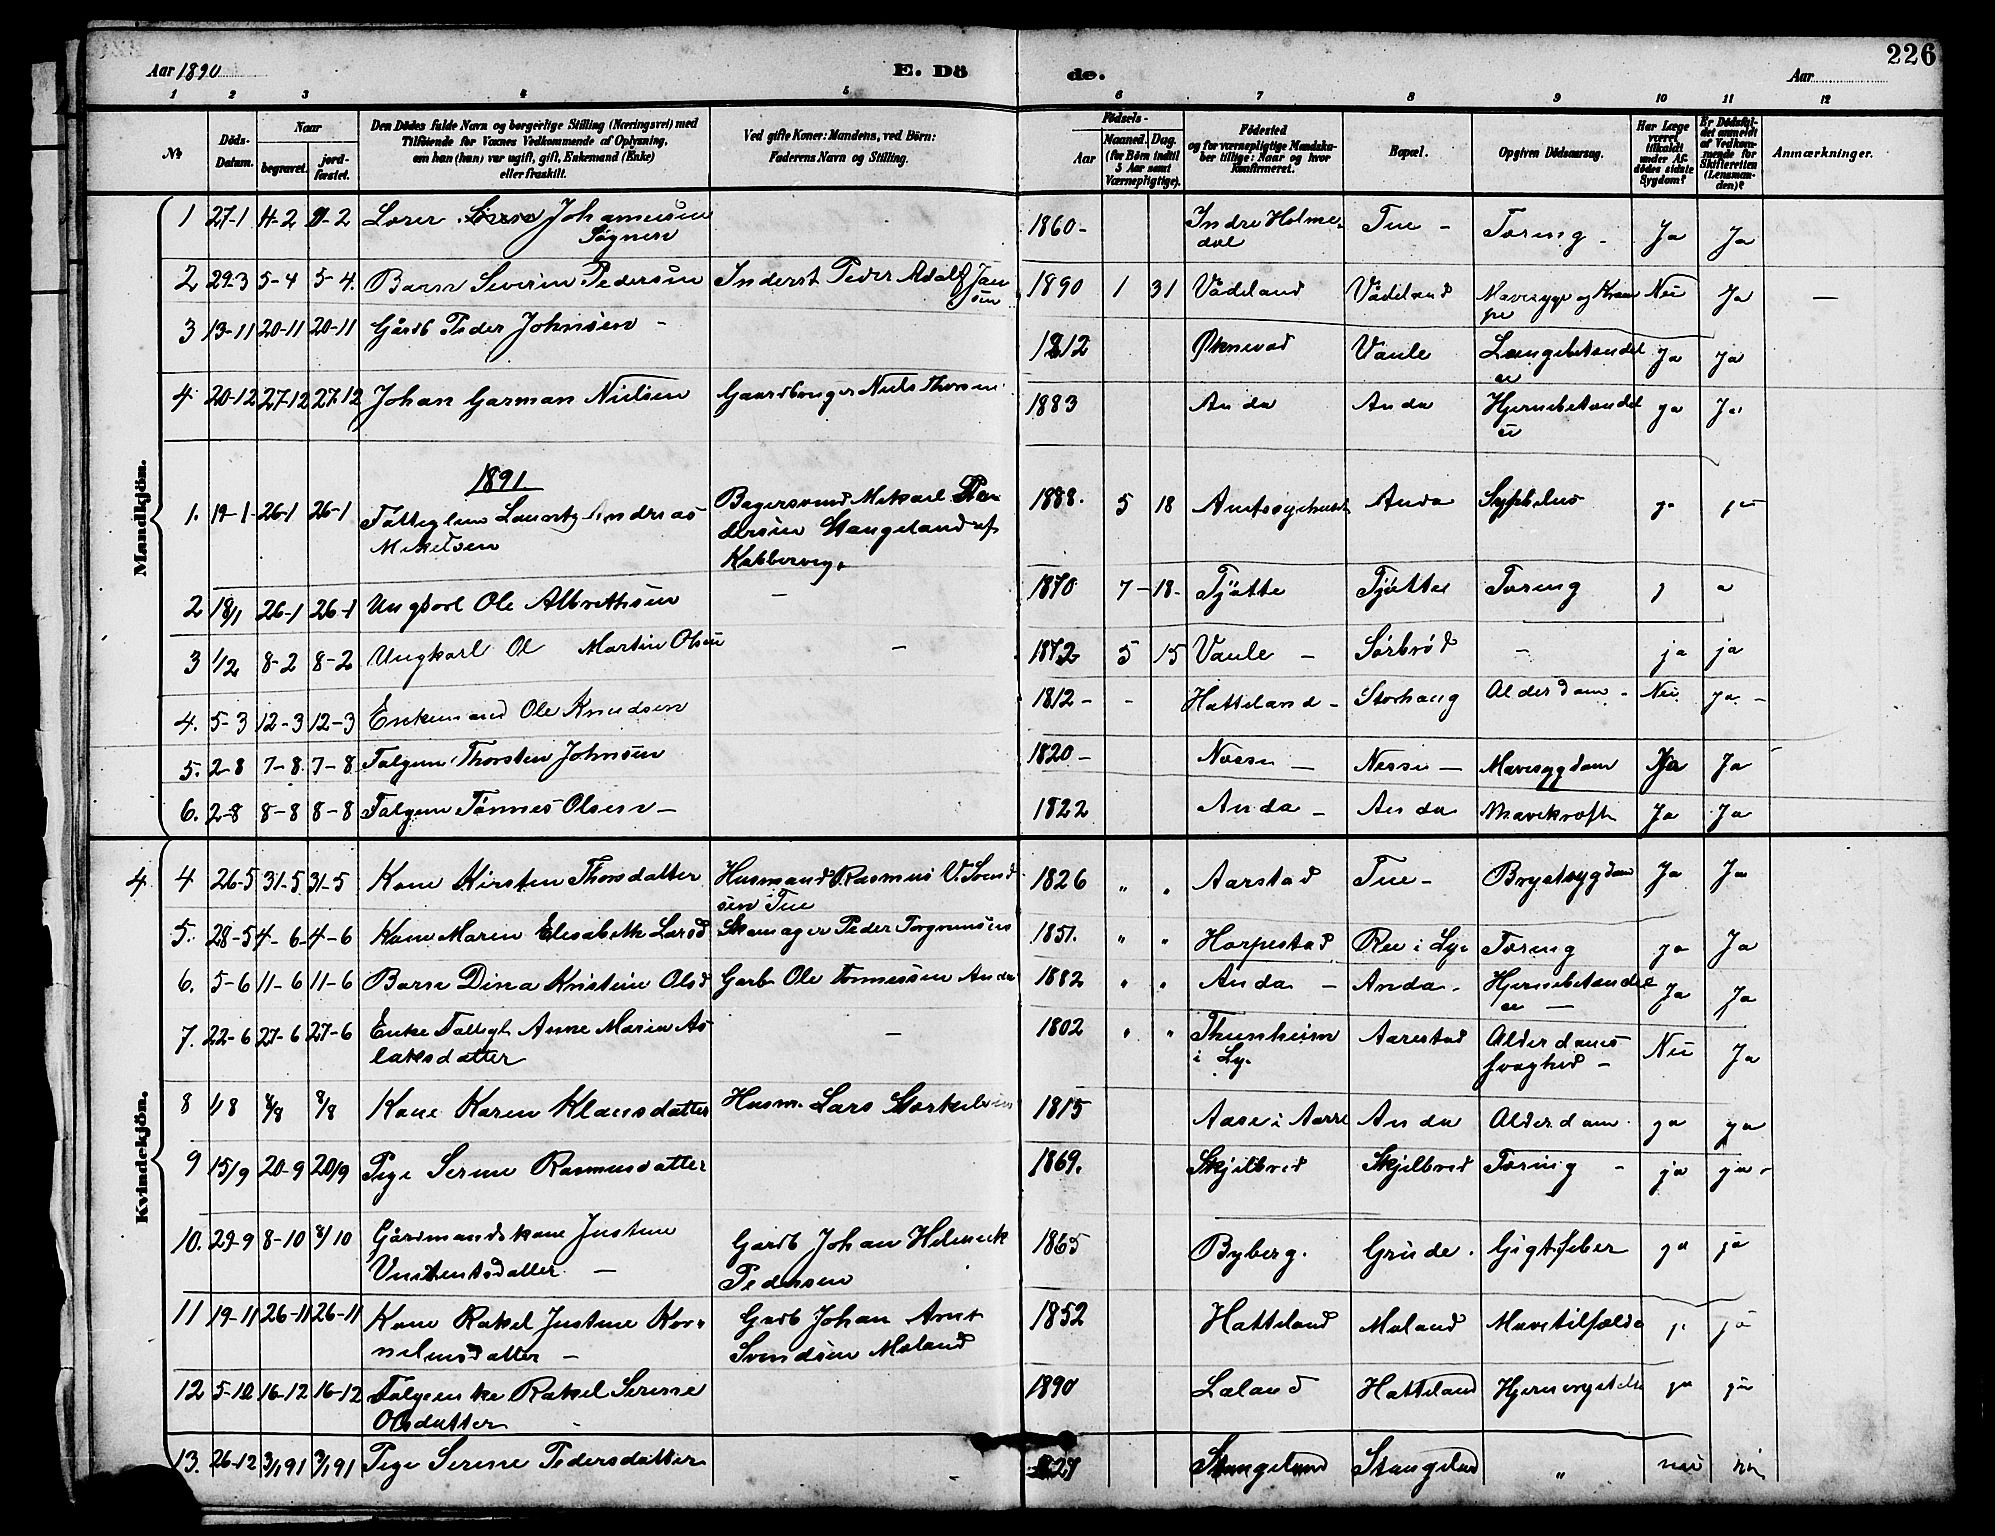 226
Aar 1890
E. Dö
de.
Aar
1 2 3 4 5 6 7 8 9 10 11 12
№
Döds-Datum.
Naar
begravet.
jord-fæstet.
Den Dödes fulde Navn og borgerlige Stilling (Næringsvei) med
Tilföiende for Voxnes Vedkommende af Oplysning,
om han (hun) var ugift, gift, Enkemand (Enke)
eller fraskilt.
Ved gifte Koner: Mandens, ved Börn:
Faderens Navn og Stilling.
Födsels-
Aar
Maaned. Dag.
(for Börn indtil
5 Aar samt
Værnepligtige).
Födested
og for værnepligtige Mandska-
ber tillige: Naar og hvor
konfirmeret.
Bopæl.
Opgiven Dödsaarsag.
Har Læge
været
tilkaldt
under Af-
dödes sidste
Sygdom?
Er Dödsfal-
det anmeldt
af Vedkom-
mende for
Skifteretten
(Lensman-
den)?
Anmærkninger.
Mandkjön.
1 27-1 4-2 Johannesen 1860- Indre Holme- Tue - Tæring - Ja Ja
dal
2 29-3 5-4 5-4. Barn Severin Pedersen Inderst Peder Adolf Jan 1890 1 31 Vådeland Vådeland Mavesyge og Kram Nei Ja —
sen pe
3 13-11 20-11 20-11 Gårdb Peder Johnsen - 1812 Øknevad Vaule Lungebetændel Ja Ja
se
4. 20-12 27-12 27-12 Johan Garman Nielsen Gaardbruger Niels Thorsen 1883 Anda Anda Hjernebetændel ja Ja
se
1891.
1. 19-1 26-1 26-1 Fattiglem Lauritz Andreas 1888. 5 18 Amtssygehuset Anda Syphilis ja
Mikelsen Stangeland af
2 18/1 26-1 26-1 Ungkarl Ole Albrethsen — 1870 7- 18- Tjøtte Tjøtte Tæring
3 1/2 8-2 8-2 Ungkarl Ol Martin Olsen — 1872 5 15 Vaule - Sørbrød - ja ja
4. 5-3 12-3 12-3 Enkemand Ole Knudsen 1812- - Hatteland- Storhaug Alderdom - Nei Ja -
5. 2-8 7-8 7-8 Folgem. Thorsten Johnsen 1820- Næsse - Nesse - Mavesygdom Ja Ja
6. 2-8 8-8 8-8 Folgem Tønnes Olsen - 1822 Anda - Anda Mavekræft Ja Ja
Kvindekjön.
4 4 26-5 31-5 31-5 Kone Kirsten Thorsdatter Husmand Rasmus V. Svend 1826 " " Aarstad Tue- Brystsygdom Ja Ja
sen Tue
5. 28-5 4-6 4-6 Kone Maren Elisabeth Larsd Skomager Peder Torgrimsen 1851. " " Horpestad Ree i Ly. Tæring ja Ja
6. 5-6 11-6 11-6 Barn Dina Kristine Olsd Garb Ole Tønnessen Anda 1882 " " Anda - Anda - Hjernebetændel Ja Ja
se —
7. 22-6 27-6 27-6 Enke Fattigl Anne Marin As — 1802 " " Thunheim Aarestad Alderdoms Nei Ja
laksdatter i Ly. svaghed -
8 1/8 8/8 8/8 Kone Karen Klausdatter Husm. Lars 1815 Aase i Aarre Anda Alderdom. ja ja
9 15/9 20-9 20/9 Pige Serine Rasmusdatter 1869. Skjelbred Skjelbred Tæring - ja ja-
10. 29-9 8-10 8/10 Gårdmandskone Justine Gardb Johan Helmik 1865 Byberg. Grude. Gigtfeber ja ja
Vincentsdatter — Pedersen
11 19-11 26-11 26-11 Kone Rakel Justine Kor- Gardb Johan Arnt 1852 Hatteland Moland Mavetilfælde ja
nelausdatter - Svendsen Moland
12 5-12 16-12 16-12 Folgeenke Rakel Serine 1890 Laland Hatteland ja ja
Olsdatter -
13. 26-12 3/1 91 3/1 91 Pige Serine Pedersdatter 1827 Stangeland Stangeland " nei nei